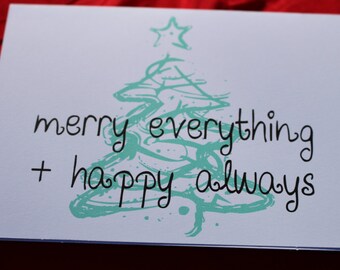 merry everything
+ happy always